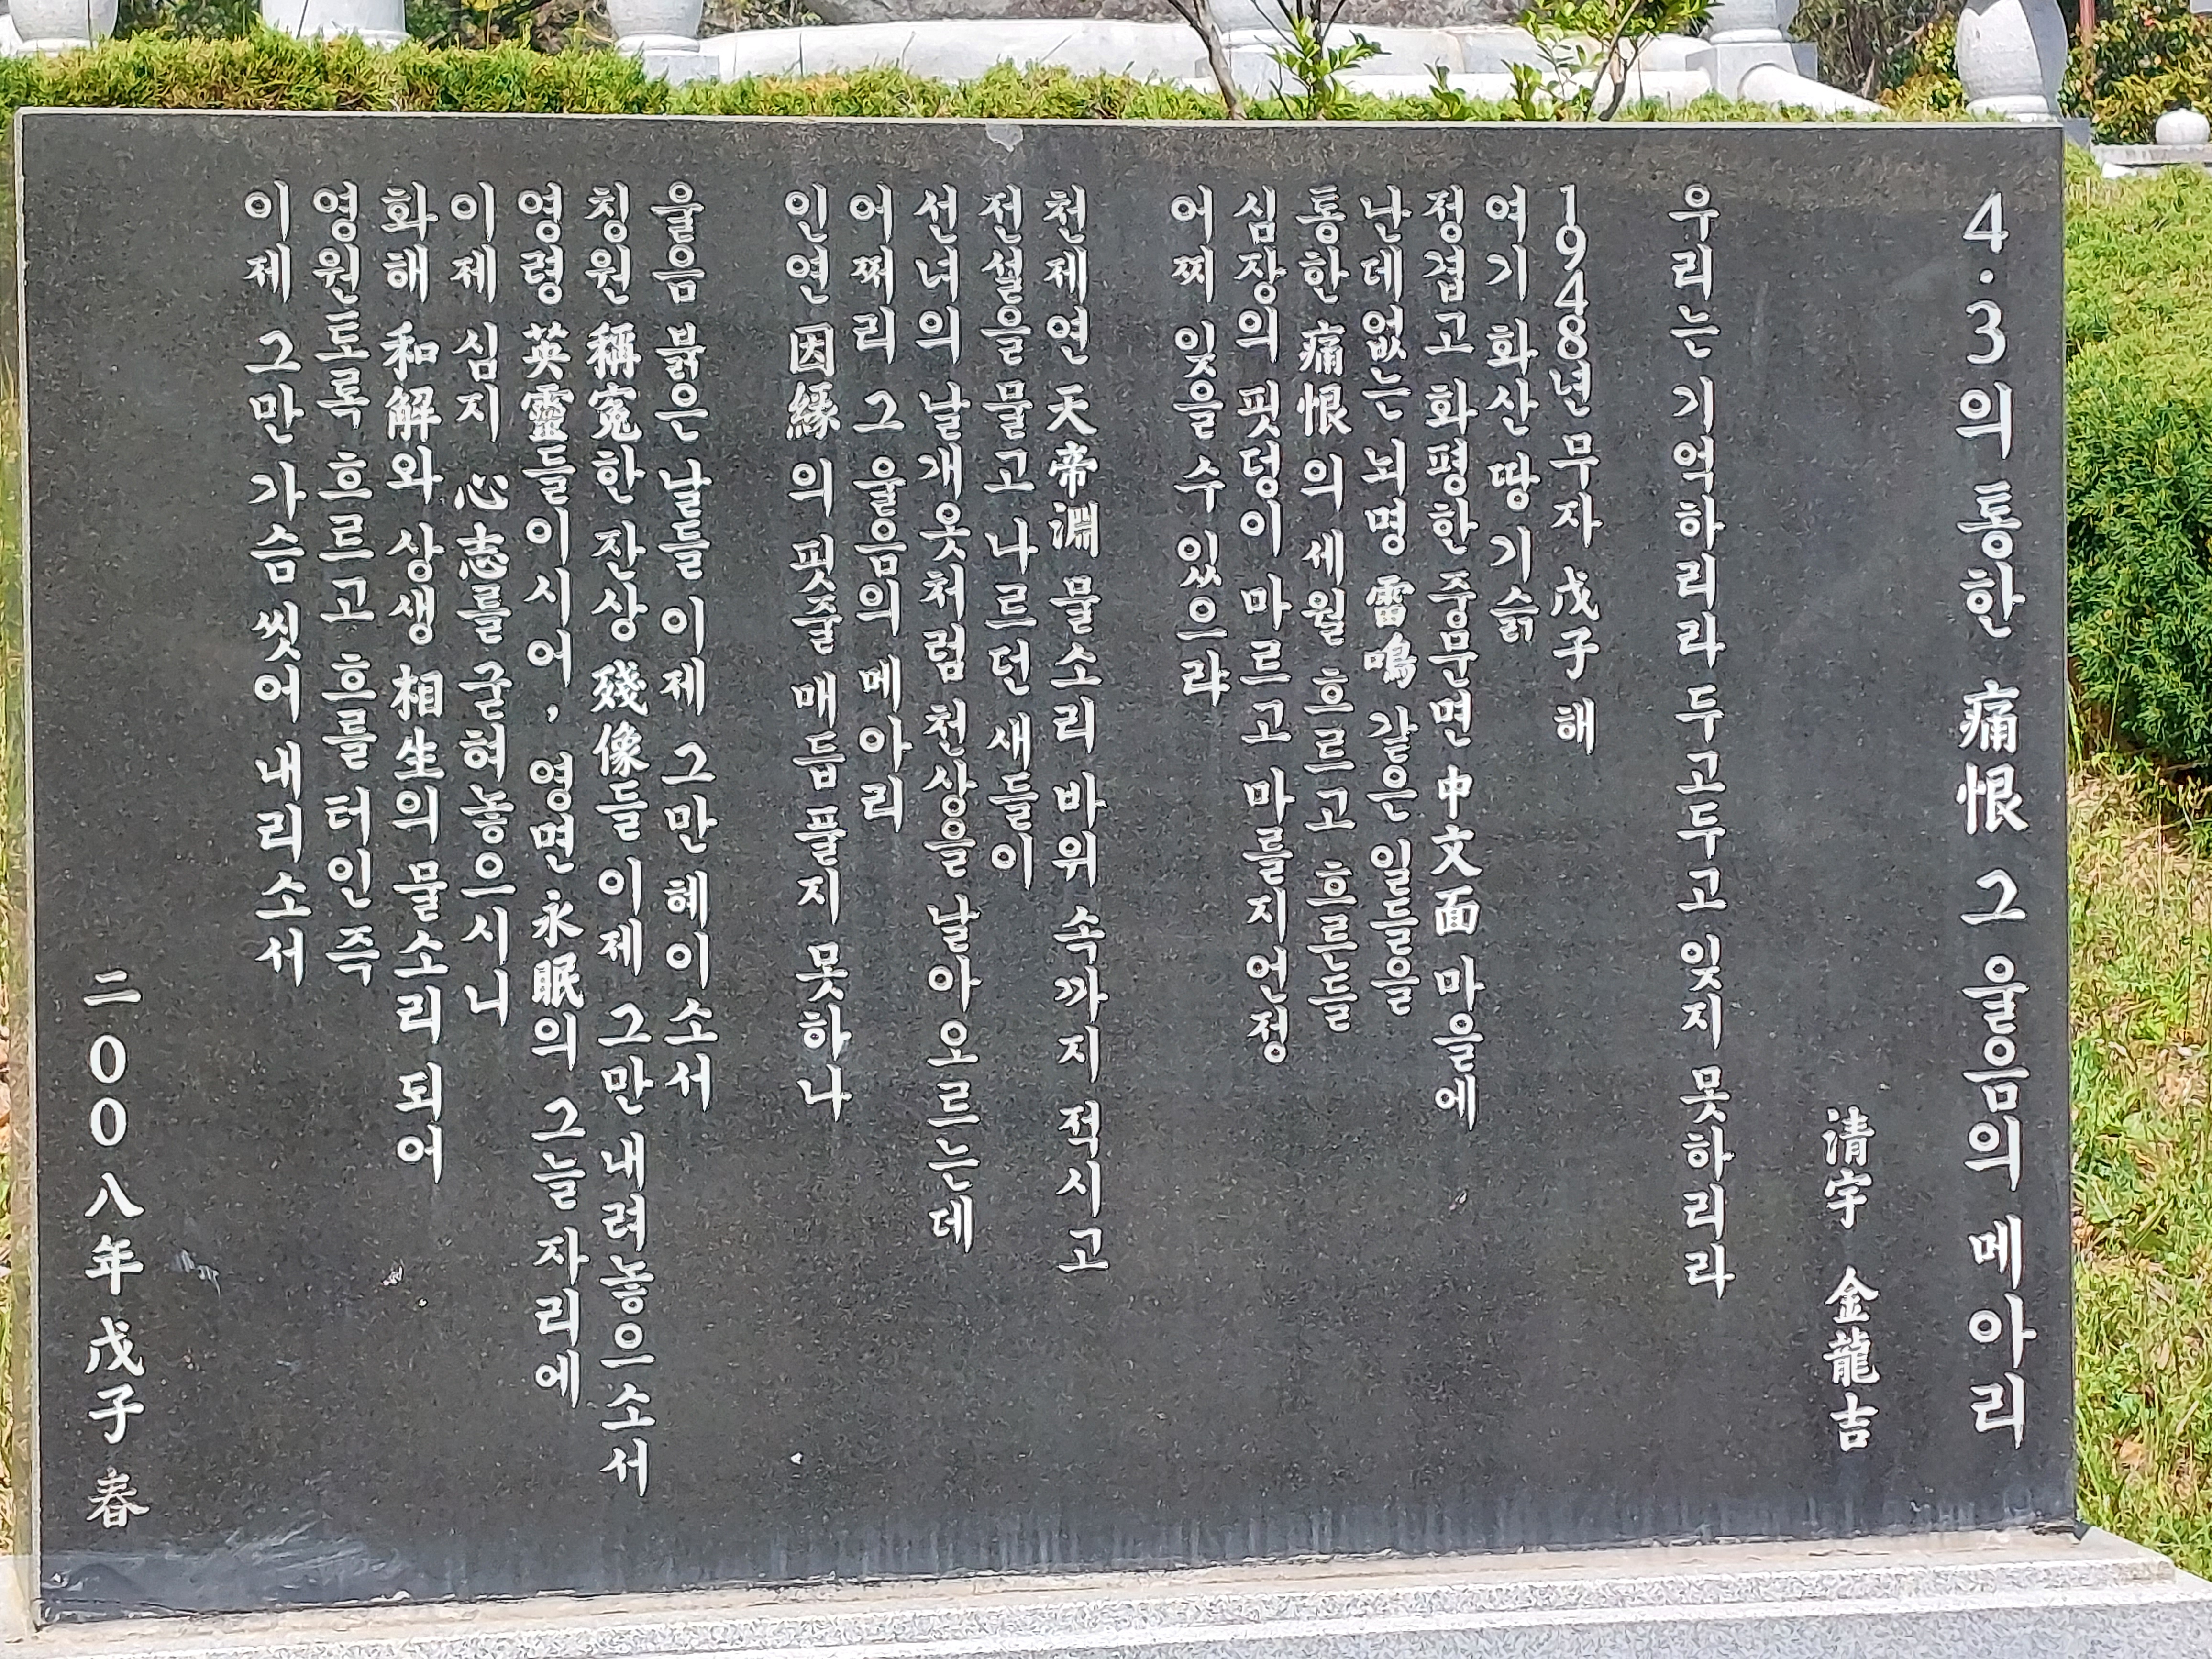 4·3의 통한 痛恨 그 울음의 메아리
清宇 金龍吉
우리는 기억하리라 두고두고 잊지 못하리라
1948년 무자 戊子 해
여기 화산 땅 기슭
정겹고 화평한 중문면 中文面 마을에
난데없는 뇌명 雷鳴 같은 일들을
통한 痛恨의 세월 흐르고 흐른들
심장의 핏덩이 마르고 마를지언정
어찌 잊을 수 있으랴
천제연 天帝淵 물소리 바위 속까지 적시고
전설을 물고 나르던 새들이
선녀의 날개옷처럼 천상을 날아오르는데
어쩌리 그 울음의 메아리
인연 因緣의 핏줄 매듭 풀지 못하나
울음 붉은 날들 이제 그만 혜이소서
칭원 稱寃한 잔상 殘像들 이제 그만 내려놓으소서
영령 英靈들이시어, 영면 永眠의 그늘 자리에
이제 심지 心志를 굳혀놓으시니
화해 和解와 상생 相生의 물소리 되어
영원토록 흐르고 흐를 터인 즉
이제 그만 가슴 씻어 내리소서
二００八年 戊子 春